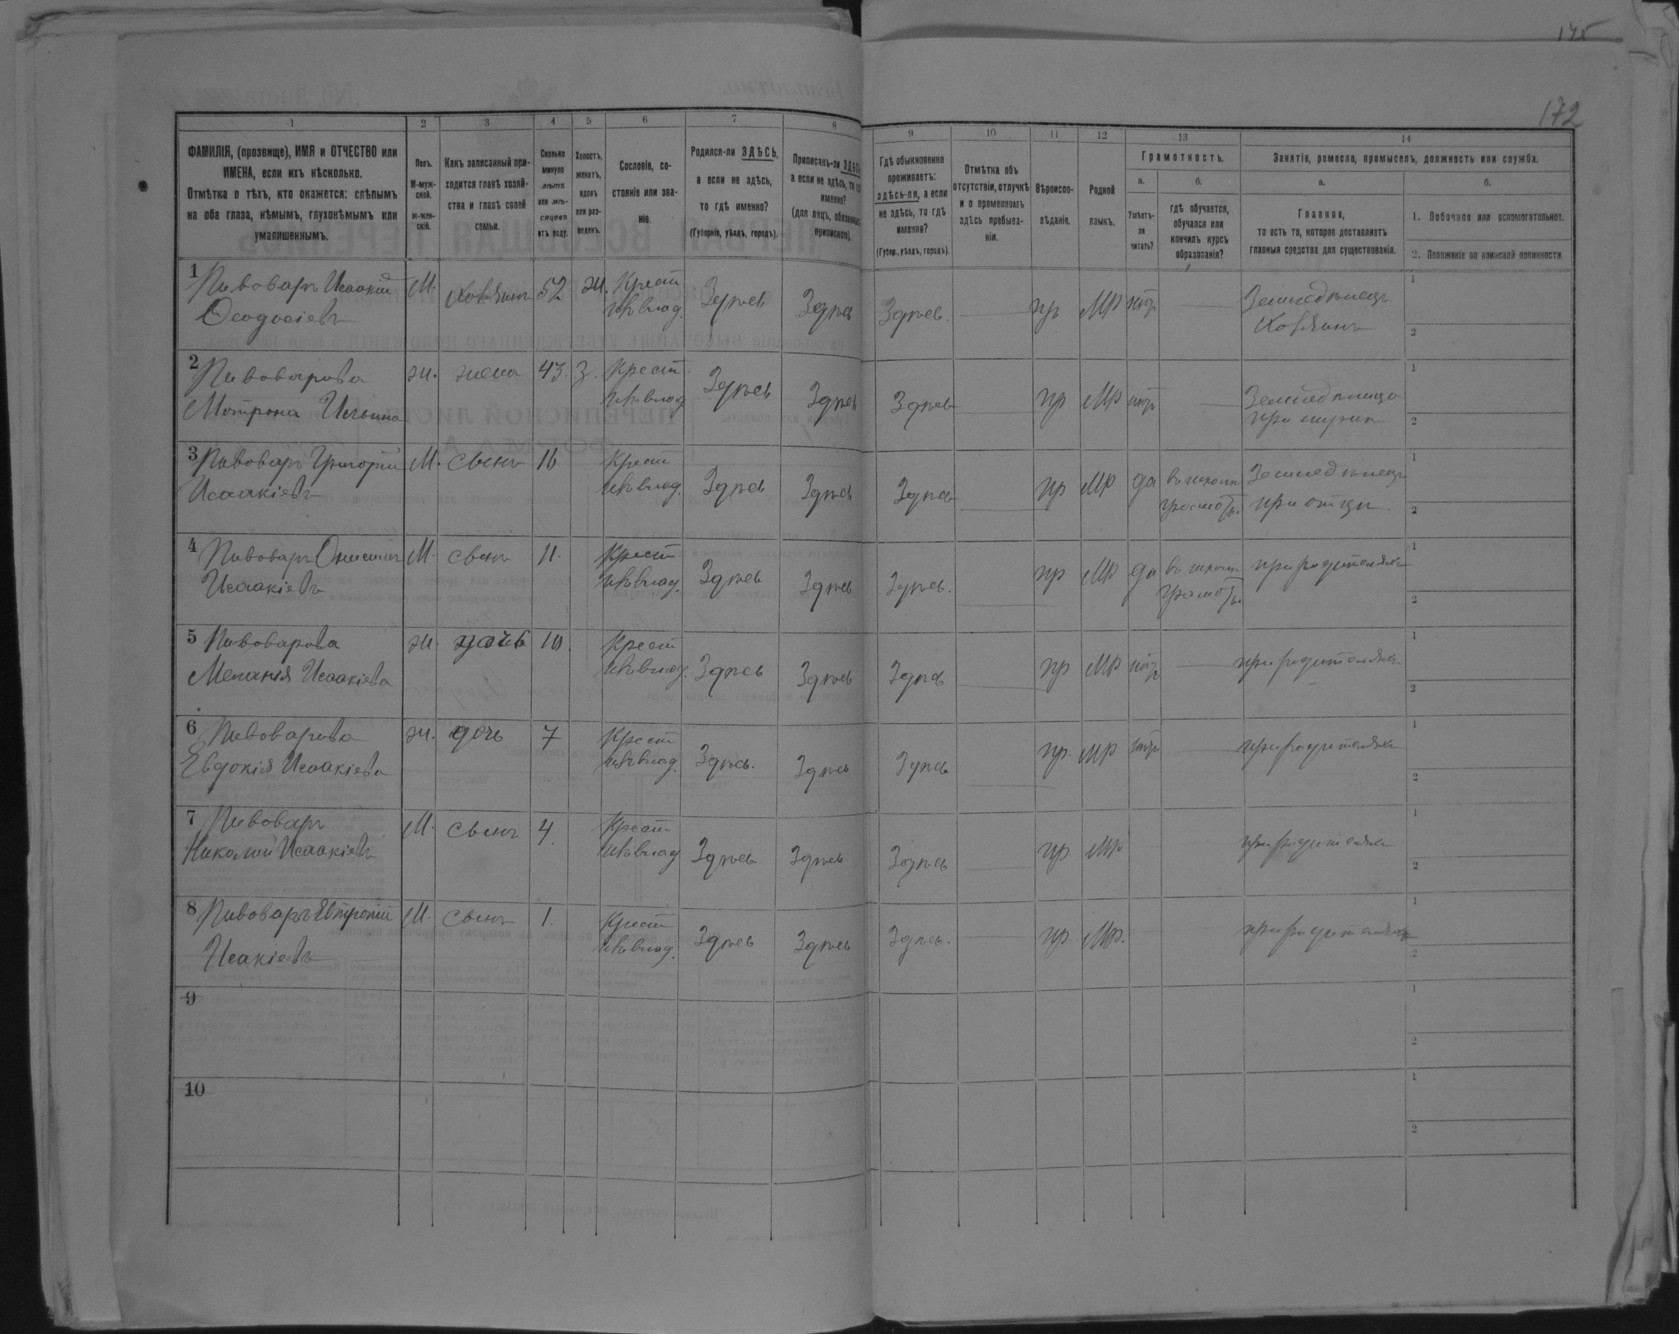 175
172
1 2 3 4 5 6 7 8 9 10 11 12 13 14
ФАМИЛІЯ, (прозвище), ИМЯ и ОТЧЕСТВО или
ИМЕНА, если ихъ нѣсколько.
Отмѣтка о тѣхъ, кто окажется: слѣпымъ
на оба глаза, нѣмымъ, глухонѣмымъ или
умалишеннымъ.
Полъ.
М-муж-
ской.
ж-жен-
скій.
Какъ записанный при-
ходится главѣ хозяй-
ства и главѣ своей
семьи.
Сколько
минуло
лѣтъ
или мѣ-
сяцевъ
отъ роду.
Холостъ,
женатъ,
вдовъ
или раз-
веденъ.
Сословіе, со-
стояніе или зва-
ніе.
Родился-ли ЗДѢСЬ,
а если не здѣсь,
то гдѣ именно?
(Губернія, уѣздъ, городъ).
Приписанъ-ли ЗДѢСЬ,
а если не здѣсь, то гдѣ
именно?
(для лицъ, обязанныхъ
припискою).
Гдѣ обыкновенно
проживаетъ:
здѣсь-ли, а если
не здѣсь, то гдѣ
именно?
(Губер., уѣздъ, городъ).
Отмѣтка объ
отсутствіи, отлучкѣ
и о временномъ
здѣсь пребыва-
ніи.
Вѣроиспо-
вѣданіе.
Родной
языкъ.
Грамотность.
а.
Умѣетъ-
ли
читать?
б.
гдѣ обучается,
обучался или
кончилъ курсъ
образованія?
Занятіе, ремесло, промыселъ, должность или служба.
а.
Главное,
то есть то, которое доставляетъ
главныя средства для существованія.
б.
1. Побочное или вспомогательное.
2. Положеніе по воинской повинности.
1 Пивоваръ Исаакій М. Хозяинъ 52 ж. Крест Здѣсь Здѣсь Здѣсь. пр МР нѣтъ Земледѣлецъ
Ѳеодосіевъ Хозяинъ
2 Пивоварова ж. жена 43. З. Крест Здѣсь Здѣсь Здѣсь пр МР нѣтъ Земледѣлица
Мотрона Ильина при мужѣ
3 Пивоваръ Григорій М. сынъ 16 Крест Здѣсь Здѣсь Здѣсь пр МР да въ школѣ Земледѣлецъ
Исаакіевъ грамоты. при отцѣ.
4 Пивоваръ Онисимъ М. сынъ 11. Крест Здѣсь Здѣсь Здѣсь. пр МР да въ школѣ при родителяхъ
Исаакіевъ грамоты.
5 Пивоварова ж. дочь 10. Крест Здѣсь Здѣсь Здѣсь пр МР нѣтъ при родителяхъ
Меланія Исаакіева
6 Пивоварова ж. дочь 7 Крест Здѣсь. Здѣсь Здѣсь пр. МР нѣтъ при родителяхъ
Евдокія Исаакіева
7 Пивоваръ М. сынъ 4. Крест Здѣсь Здѣсь Здѣсь пр МР при родителяхъ
Николай Исаакіевъ
8 Пивоваръ Евтропій М. сынъ 1. Крест Здѣсь Здѣсь Здѣсь. пр. МР. при родителяхъ
Исакіевъ
9
10